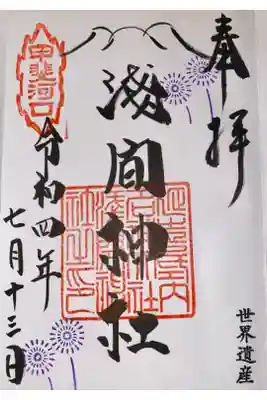 奉拝
浅間神社
甲斐河口
令和四年
七月十三日
世界遺産